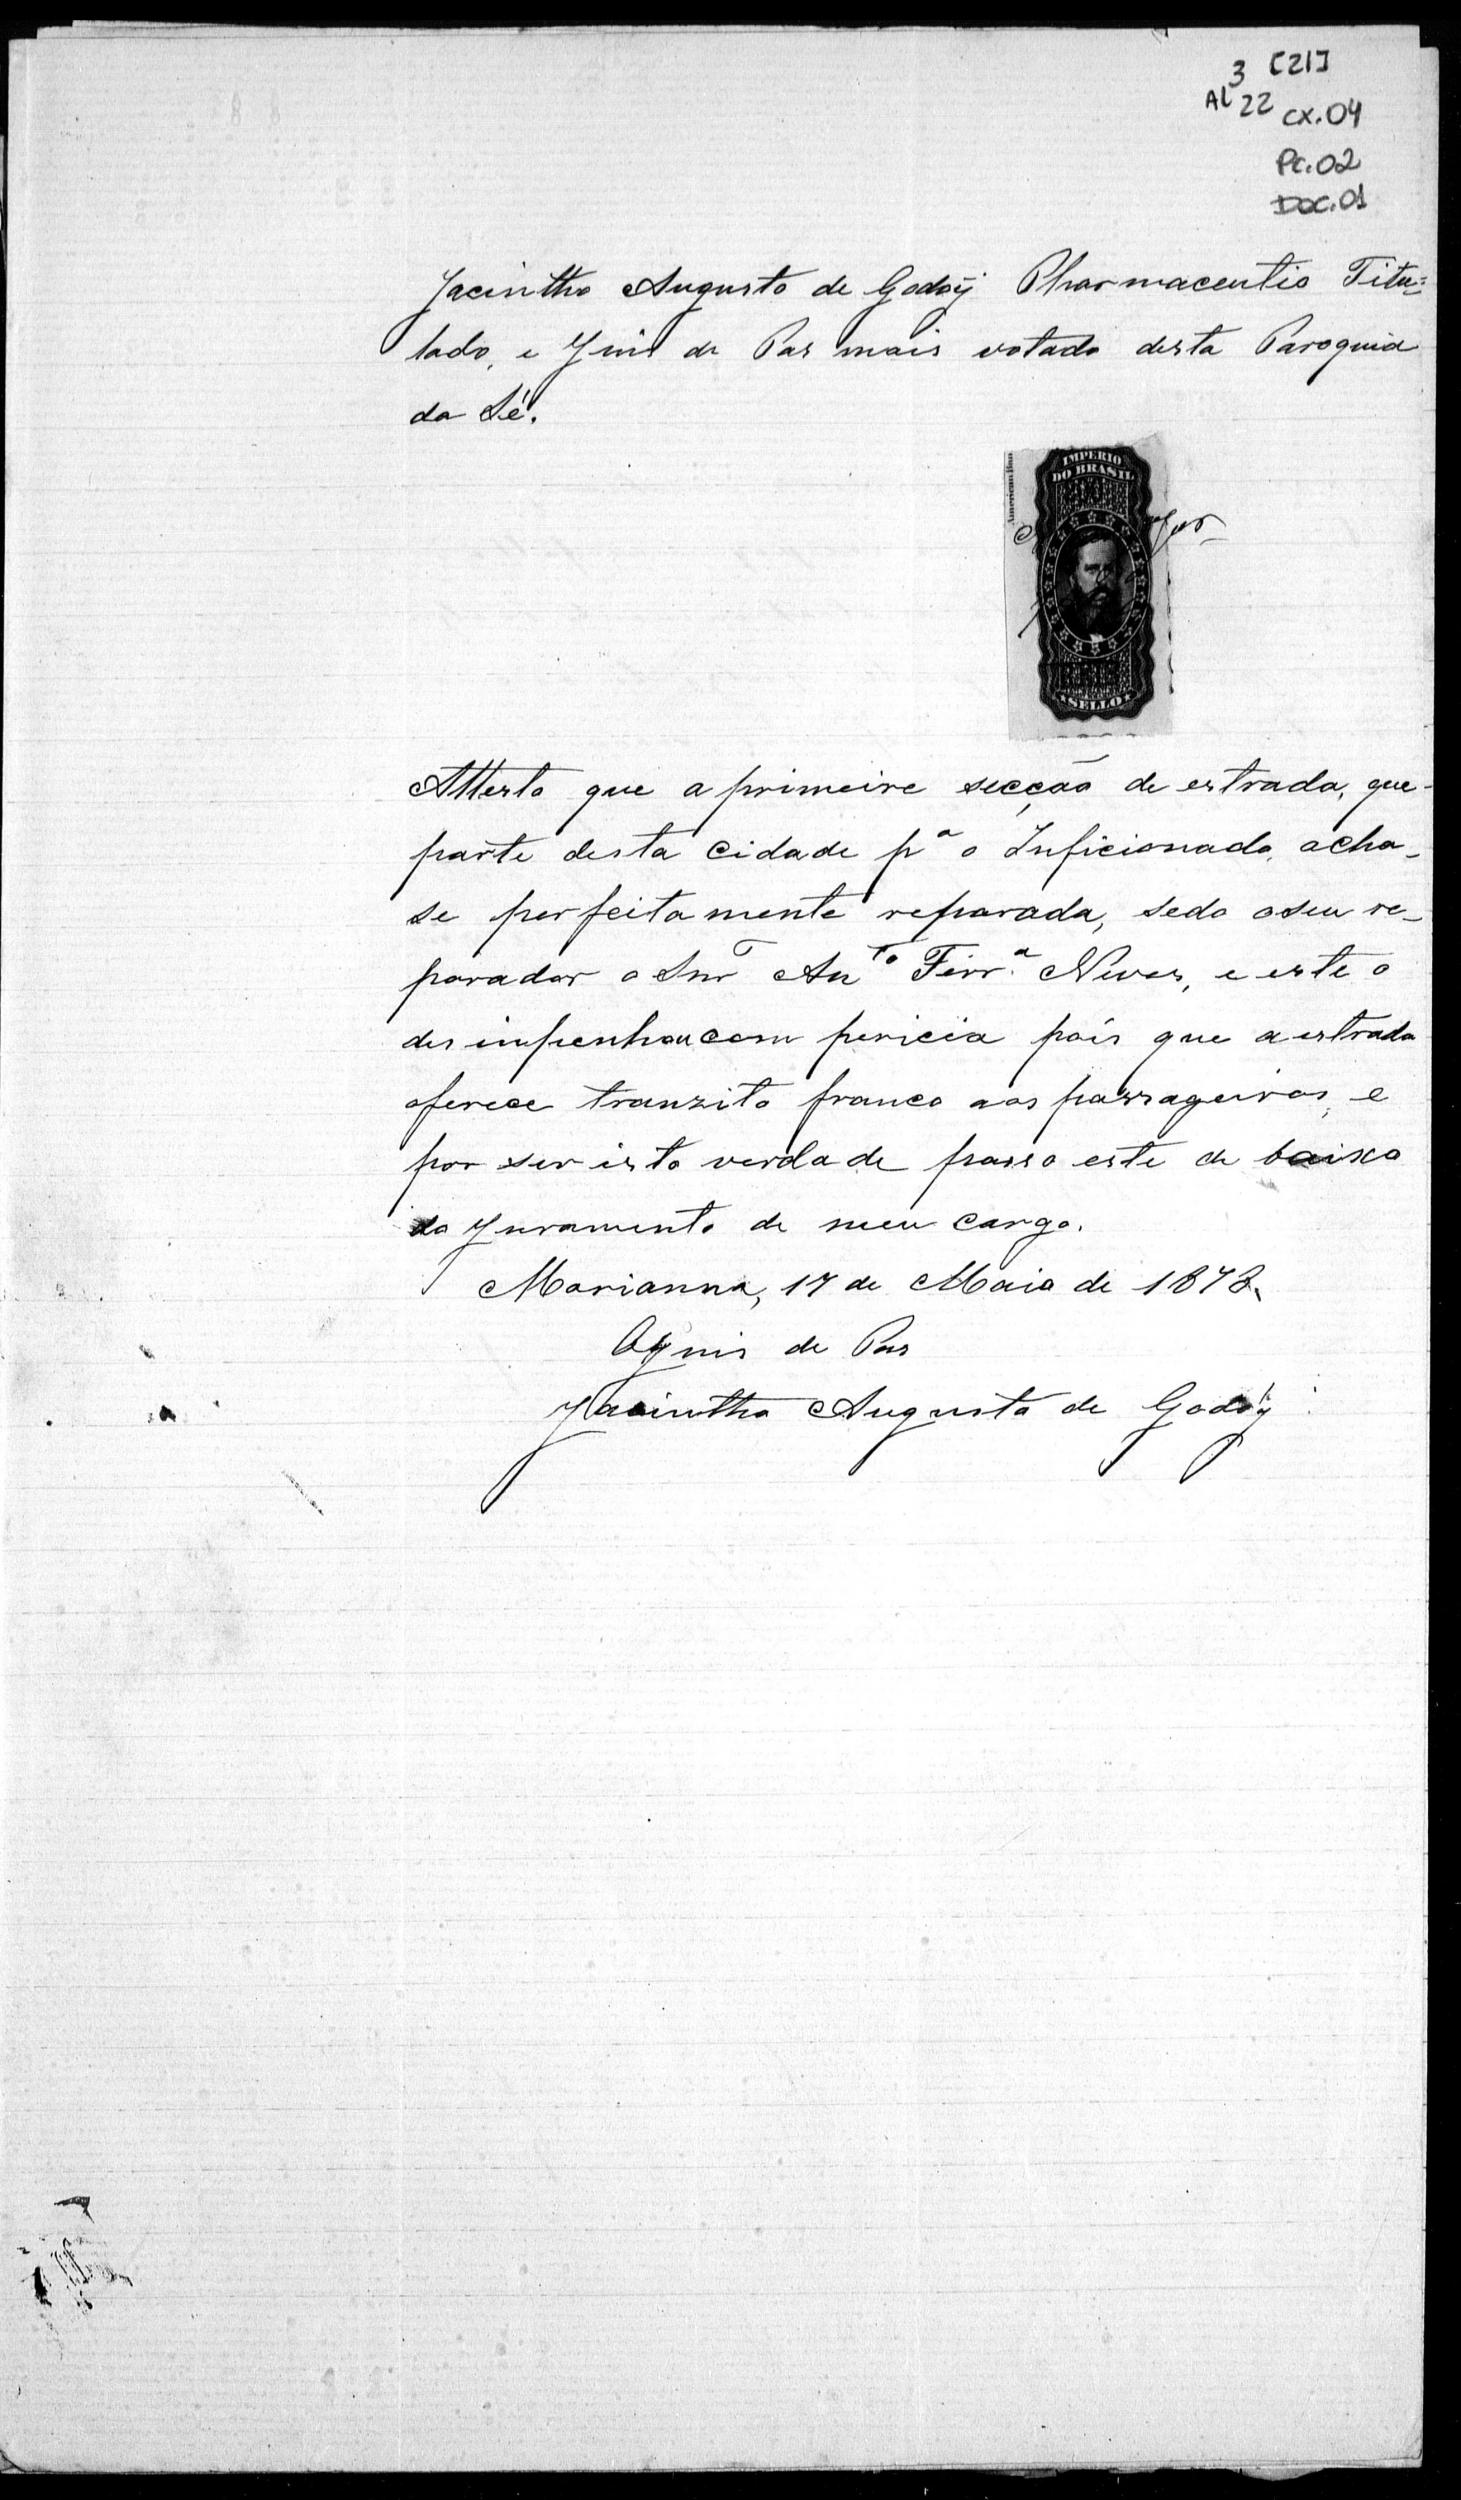 3 [21]
AL 22 CX.04
PC.02
DOC.01
Jacintho Augusto de Godoÿ Pharmaceutio Titu=
lado, e Juis de Pas mais votado desta Paroquia
da Sé.
IMPERIO
DO BRASIL
SELLO
Attesto que a primeire secção de estrada, que
parte desta Cidade pª o Inficionado, acha-
se perfeitamente reparada, sedo o seu re-
parador o Snr Anto Ferrª Neves, e este o
desimpenhou com pericia pois que a estrada
oferece tranzito franco aos passageiros, e
por ser isto verdade passo este de baixo
do Juramento de meu Cargo.
Marianna, 17 de Maio de 1878.
O Juis de Pas
Jacintho Augusto de Godoÿ